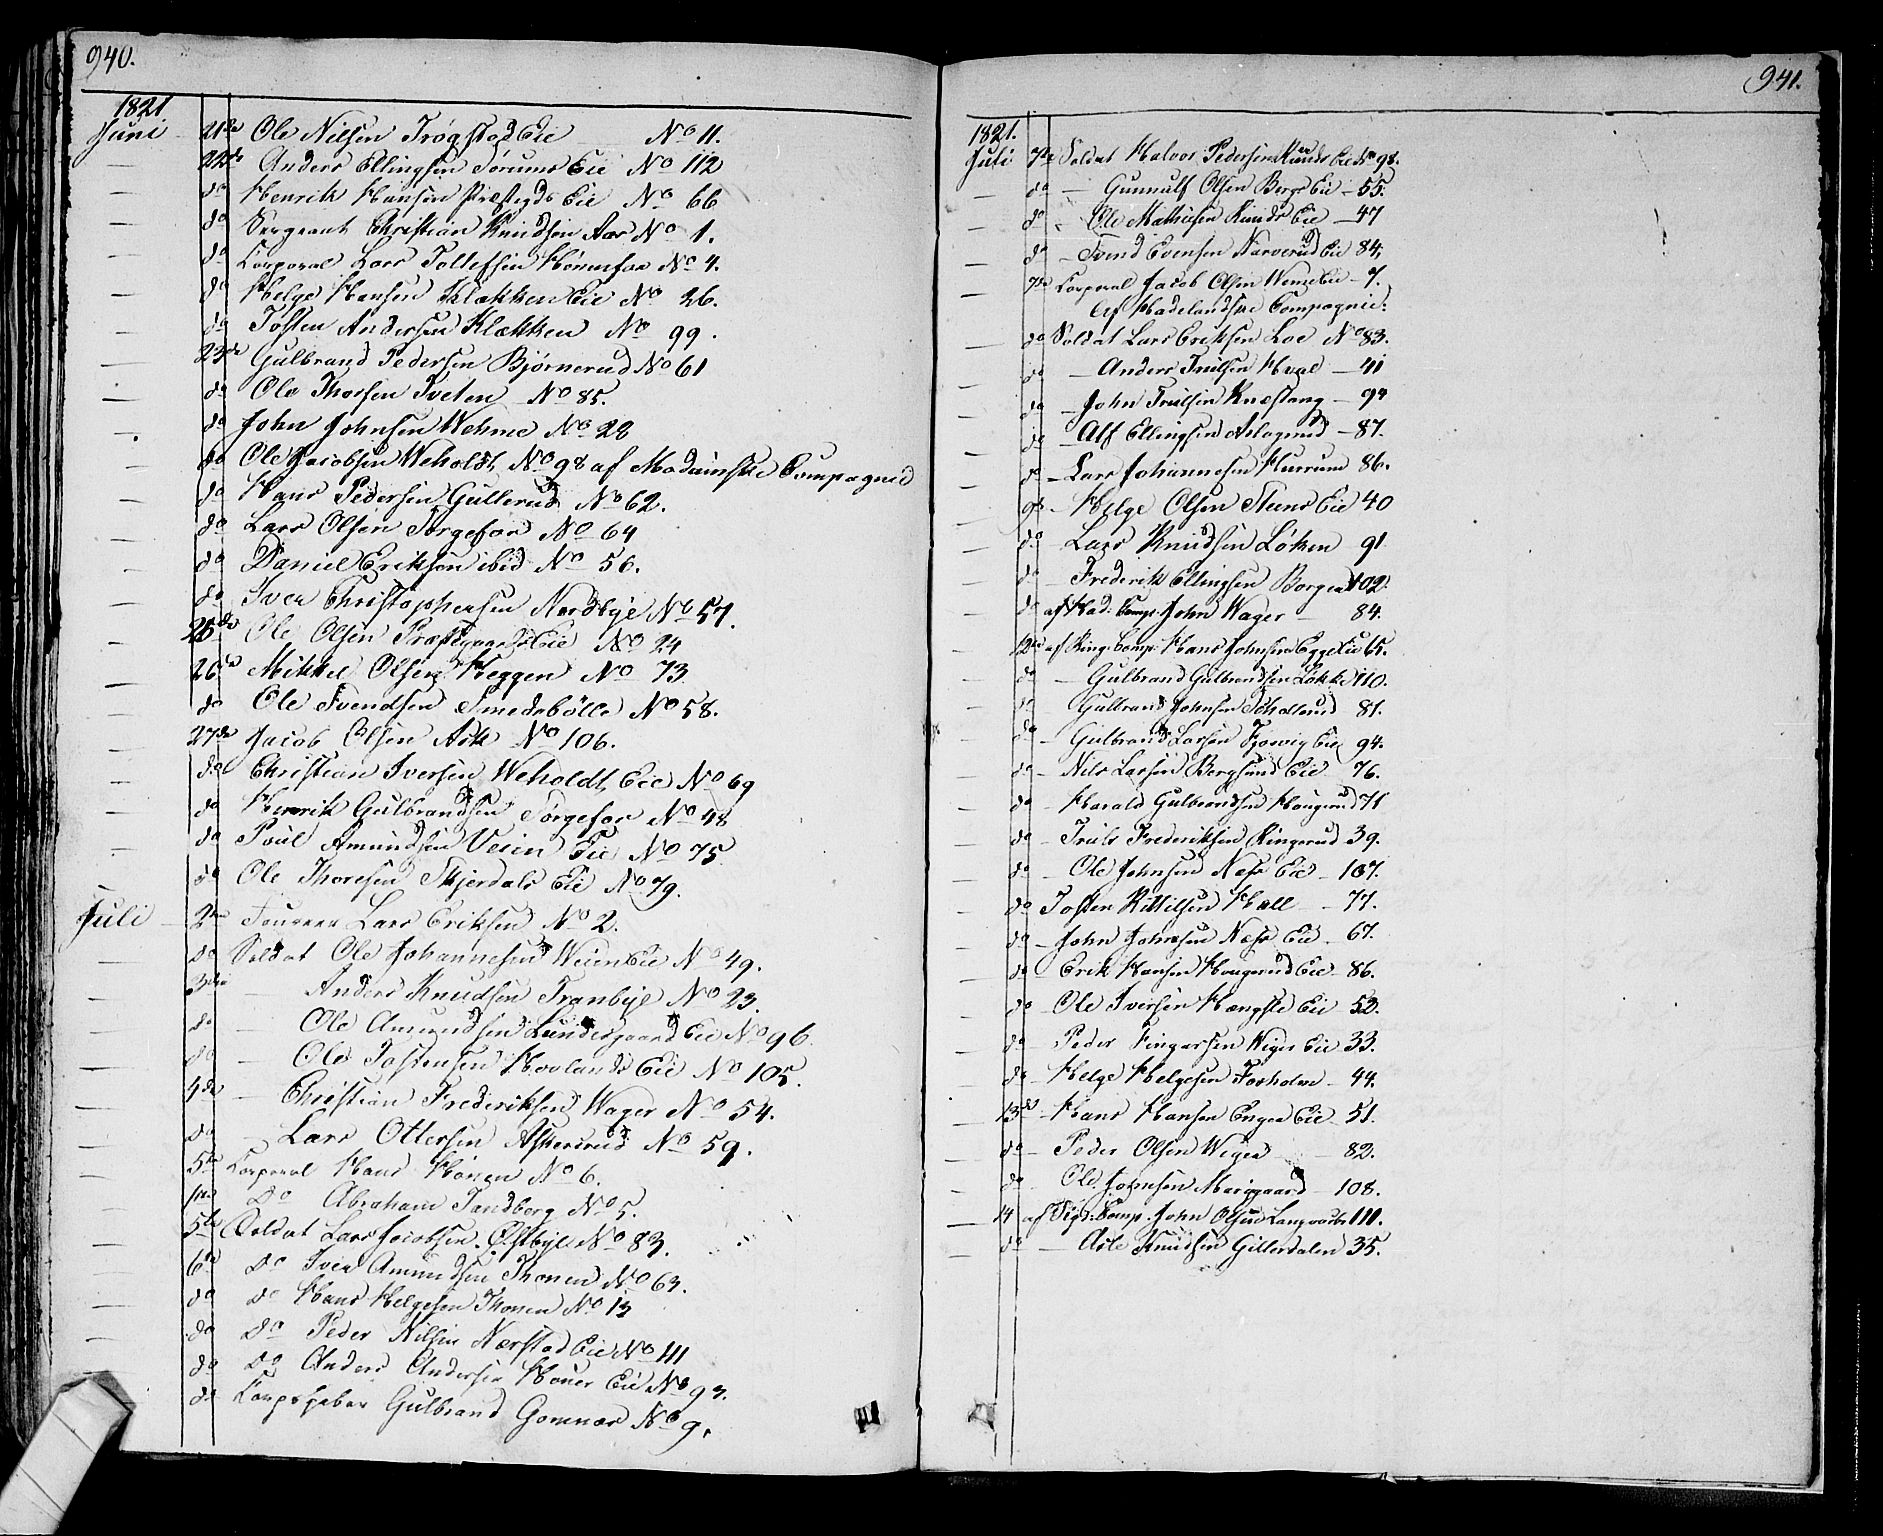 940.
1821
Juni 21de Ole Nilsen Trøgstad Eie No 11.
22de Anders Ellingsen Tørums Eie No 112
do Henrik Hansen Præstgds Eie No 66
do Sergeant Christian Knudsen Aas No 1.
do Corporal Lars Tollefsen Hønnefos No 4.
do Helge Hansen Klækken Eie No 26.
do Tosten Andersen Klækken No 99.
23de Gulbrand Pedersen Bjørnerud No 61
do Ole Thorsen Tveten No 85.
do John Johnsen Wehme No 28
do Ole Jacobsen Weholdt No 98 af Modumske Compagnie
do Hans Pedersen Gullerud No 62.
do Lars Olsen Torgefos No 64
do Daniel Eriksen ibid No 56.
do Iver Christophersen Nordbye No 57.
25de Ole Olsen Præstgaards Eie No 24
26de Mikkel Olsen Heggen No 73
do Ole Svendsen Smedsbølle No 58.
27de Jacob Olsen Ask No 106.
do Christian Iversen Weholdt Eie No 69
do Henrik Gulbrandsen Torgefos No 48
do Poul Amundsen Veien Eie No 75
do Ole Thoresen Skjerdals Eie No 79.
Juli 2den Lars Eriksen No 2.
do Soldat Ole Johannesen Weien Eie No 49.
3die — Anders Knudsen Tranbye No 23.
do — Ole Amundsen Lundesgaard Eie No 96.
do — Ole Tostensen Hovlands Eie No 105.
4de — Christian Frederiksen Wager No 54.
do — Lars Ottersen Askerud No 59.
5te Corporal Hans Hønen No 6.
do Abraham Sandberg No 5.
5te Soldat Lars Jacobsen Østbye No 83.
6te do Iver Amundsen Thonen No 63.
do do Hans Helgesen Thonen No 13
do do Peder Nilsen Nærstad Eie No 111
do do Anders Andersen Houer Eie No 93.
do Gulbrand Gomnæs No 9.
941.
1821.
Juli 7de Soldat Halvor Pedersen Eie No 98.
do — Gunnulf Olsen Bergs Eie — 55.
do - Ole Mathisen Runds Eie — 47
do - Svend Evensen Narverud Eie 84.
7de Corporal Jacob Olsen Wenne Eie — 7.
Af Hadelandske Compagnie:
do Soldat Lars Eriksen Loe No 83.
do — Anders Trulsen Hval — 41
do — John Trulsen Knestang — 94
do — Alf Ellingsen Aslagrud — 87.
do — Lars Johannesen Hurrum 86.
9de - Helge Olsen Steens Eie 40
do - Lars Knudsen Løken 91
do Frederik Ellingsen Borgen 102.
do af Had: Comp. John Wager — 84.
12te af Ring: Comp: Hans Johnsen Egge Eie 65.
do — Gulbrand Gulbrandsen Løkke 110.
do Gulbrand Johnsen 81.
do - Gulbrand Larsen Fjosvig Eie 94.
do - Nils Larsen Bergsund Eie 76.
do - Harald Gulbrandsen Hougerud 71
do - Truls Frederiksen Ringerud 39.
do - Ole Johnsen Næss Eie — 107.
do Tosten Kittilsen Hall — 77.
do - John Johnsen Næss Eie - 67.
do Erik Hansen Hougerud Eie - 86.
do - Ole Iversen Hængsle Eie 52.
do - Peder Fingarsen Wiger Eie 33.
do - Helge Helgesen Fosholm - 44.
13de - Hans Hansen Enger Eie - 51.
do - Peder Olsen Wiger — 82.
do Ole Johnsen Marigaard — 108.
14 af Sigd: Comp. John Olsen 111.
do — Asle Knudsen Gillerdalen 35.